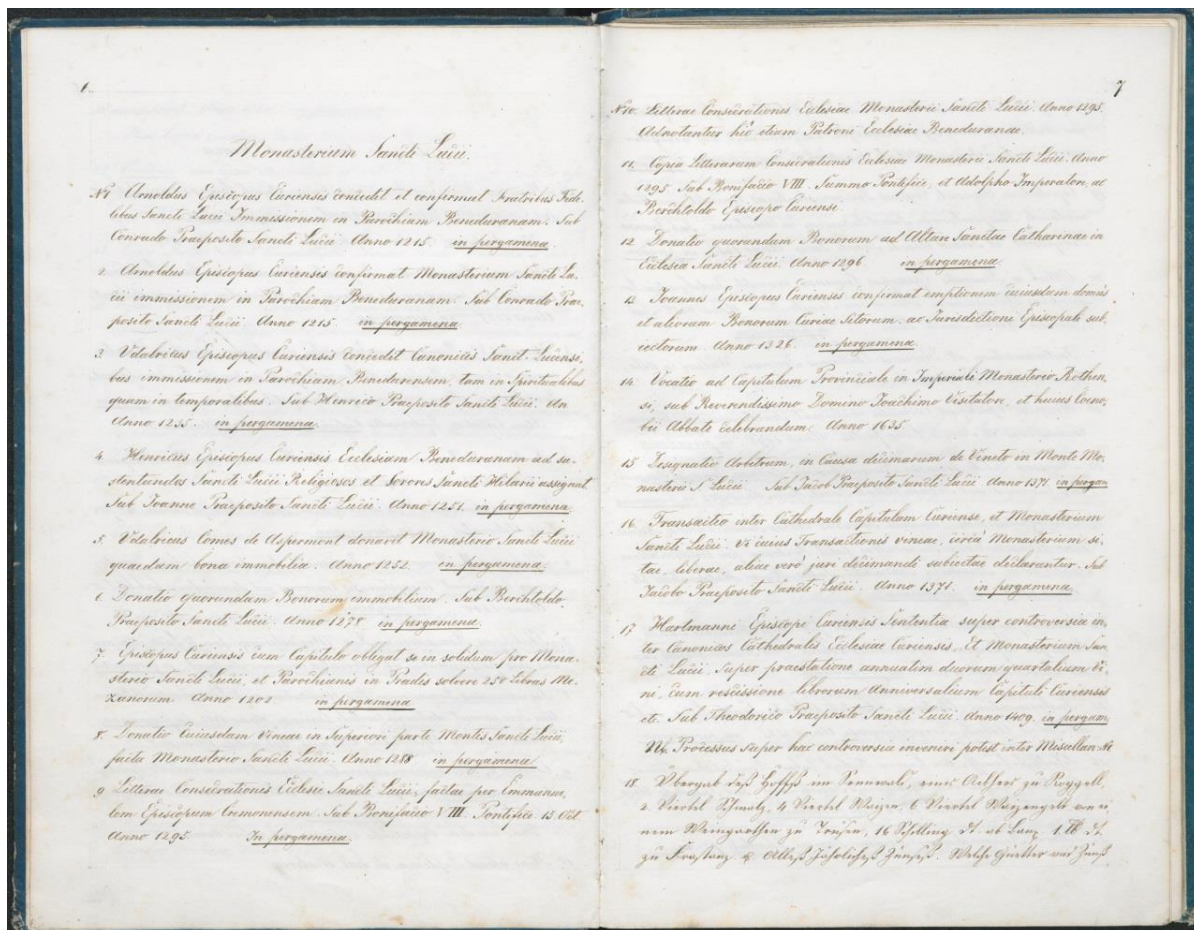 6.
Monasterium Sancti Lucii.
No 1 Arnoldus Episcopus Curiensis concedit et confirmat Fratribus Fide-
libus Sancti Lucii Immissionem in Parochiam Beneduranam. Sub
Conrado Praeposito Sancti Lucii. Anno 1215. in pergamena.
2. Arnoldus Episcopus Curiensis confirmat Monasterium Sancti Lu-
cii immissionem in Parochiam Beneduranam. Sub Conrado Prae-
posito Sancti Lucii. Anno 1215. in pergamena.
3. Vdalricus Episcopus Curiensis concedit Canonicis Sanct. Lucensi-
bus immissionem in Parochiam Benedurensem, tam in Spiritualibus
quam in temporalibus. Sub Henrico Praeposito Sancti Lucii. An
Anno 1235. in pergamena.
4. Henricus Episcopus Curiensis Ecclesiam Beneduranam ad su-
stentandos Sancti Lucii Religiosos et Sorores Sancti Hilarii assignat
Sub Joanne Praeposito Sancti Lucii. Anno 1251. in pergamena.
5. Vdalricus Comes de Aspermont donavit Monasterio Sancti Lucii
quaedam bona immobilia. Anno 1252. in pergamena.
6. Donatio quorundam Bonorum immobilium. Sub Berchtoldo
Praeposito Sancti Lucii. Anno 1278 in pergamena.
7. Episcopus Curiensis cum Capitulo obligat se in solidum pro Mona-
sterio Sancti Lucii, et Parochianis in Pradis solvere 250 Libras Me-
zanorum. Anno 1202 in pergamena
8. Donatio Cuiusdam Vineae in Superiori parte Montis Sancti Lucii,
facta Monasterio Sancti Lucii. Anno 1288 in pergamena
9 Litterae Consecrationis Ecclesie Sancti Lucii, factae per Emmanue-
lem Episcopum Cremonensem. Sub Bonifacio VIII. Pontifice. 15 Oct.
Anno 1295. In pergamena.
7
No 10. Litterae Consecrationis Ecclesiae Monasterii Sancti Lucii. Anno 1295.
Adnotantur hic etiam Patroni Ecclesiae Beneduranae.
11. Copia Litterarum Consecrationis Ecclesiae Monasterii Sancti Lucii. Anno
1295 Sub Bonifacio VIII. Summo Pontifice, et Adolpho Imperatore, ac
Berchtoldo Episcopo Curiensi.
12. Donatio quorundam Bonorum ad Altare Sanctae Catharinae in
Ecclesia Sancti Lucii. Anno 1296 in pergamena
13. Joannes Episcopus Curiensis confirmat emptionem cuiusdam domûs
et aliorum Bonorum Curiae Sitorum, ac Jurisdictioni Episcopali sub-
iectorum. Anno 1326. in pergamena.
14. Vocatio ad Capitulum Provinciale in Imperiali Monasterio Rothen-
si, sub Reverendissimo Domino Joachimo Visitatore, et huius Coeno-
bii Abbate celebrandum. Anno 1635.
15 Designatio Arbitrum, in Causa decimarum de Vineto in Monte Mo-
nasterii S. Lucii Sub Jacob Praeposito Sancti Lucii Anno 1371 in pergam
16. Transactio inter Cathedrale Capitulum Curiense, et Monasterium
Sancti Lucii. Vi cuius Transactionis vineae, circà Monasterium si-
tae, liberae, aliae verò juri decimandi subiectae declarantur. Sub
Jacobo Praeposito Sancti Lucii. Anno 1371. in pergamena.
17 Hartmanni Episcopi Curiensis Sententia super controversia in-
ter Canonicos Cathedralis Ecclesiae Curiensis, Et Monasterium San-
cti Lucii, Super praestatione annuatim duorum quartalium Vi-
ni, cum rescissione librorum Anniversalium Capituli Curiensis
etc. Sub Theodorico Praeposito Sancti Lucii. Anno 1409. in pergam.
Nb. Processus super hac controversia inveniri potest inter Misallan. No
18. Übergab deß Hoffß im Sennwald, eines Ackhers zu Ruggell,
2 Viertel Schmalz, 4 Viertel Waizen, 6 Viertel Waizengelt von ei
nem Weingarthen zu Trisen, 16 Schilling dt. ab Lanz 1 lb dt.
zu Frastanz etc. Alleß Jährlicheß Zinseß. Welche Guetter und Zinß